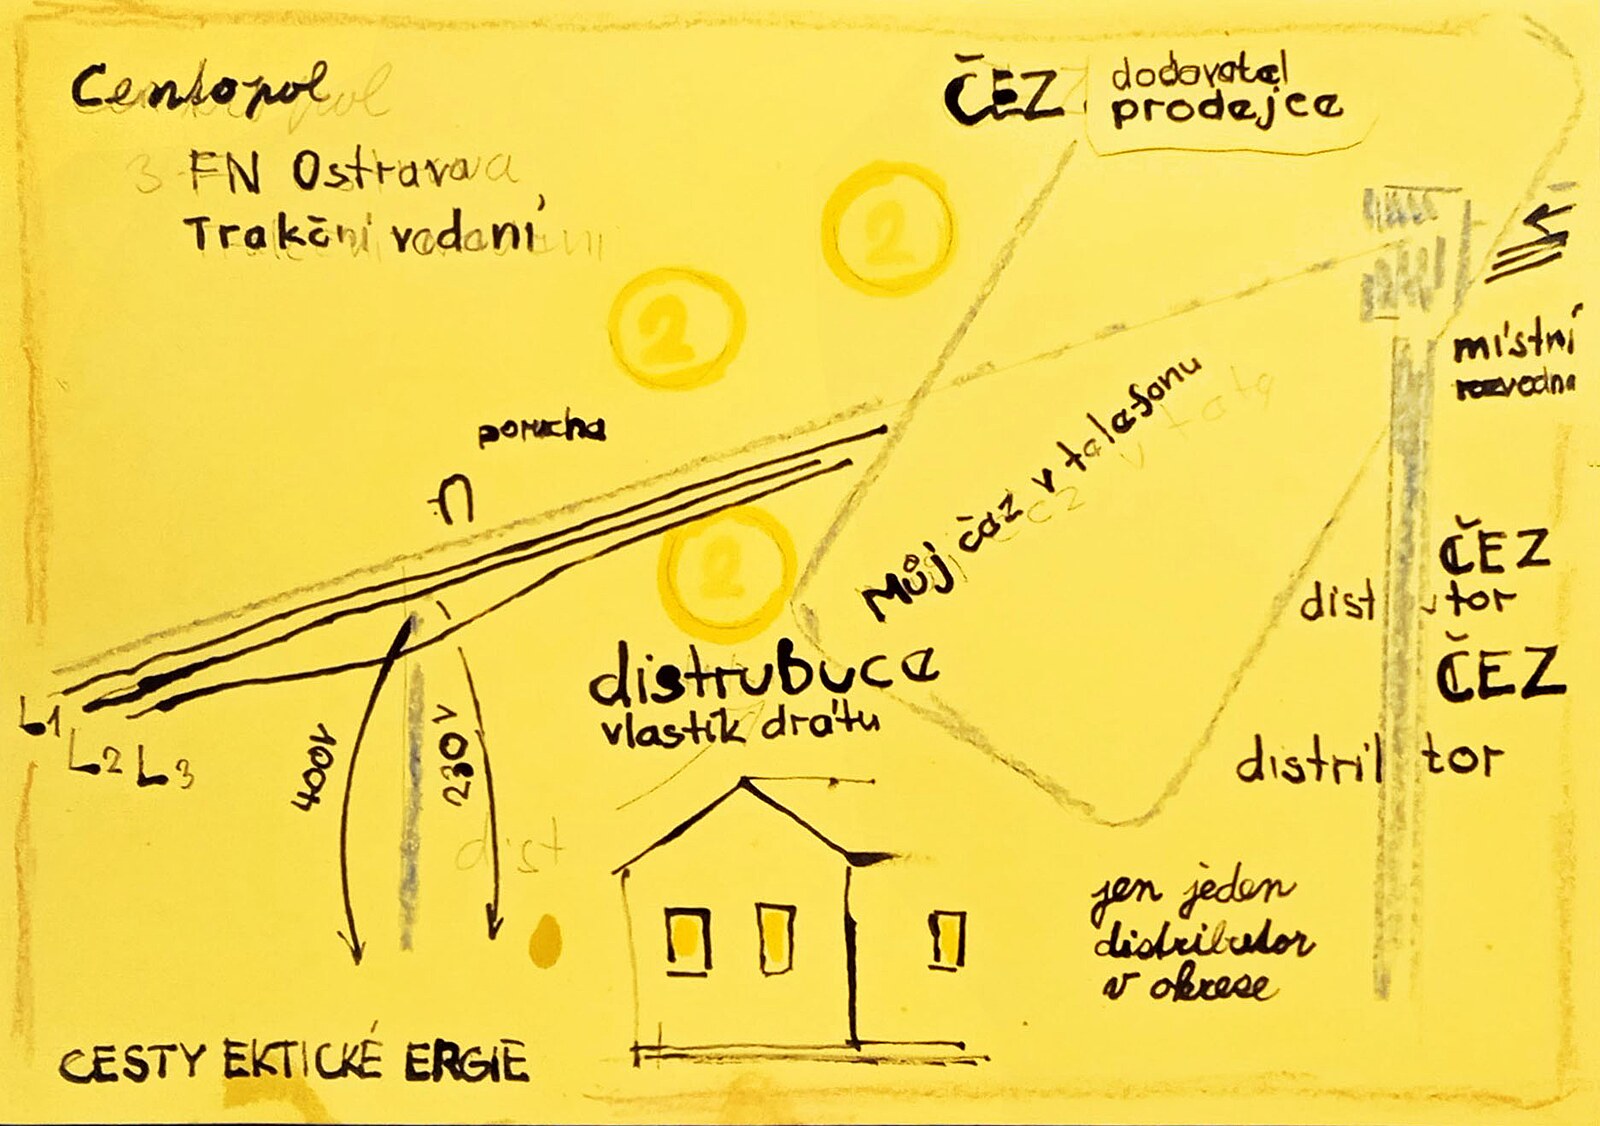 Centopol
3 FN Ostrava
Trakční vedaní
ČEZ
dodovatel
prodejce
2
2
2
porucha
místní
rozvodna
Můj čaz v talafonu
L1
L2
L3
400V
230V
distruBuce
vlastík drátu
dist
ČEZ
dist tor
ČEZ
distril tor
jen jeden
distributor
v okrese
CESTY EKTICKÉ ERGIE